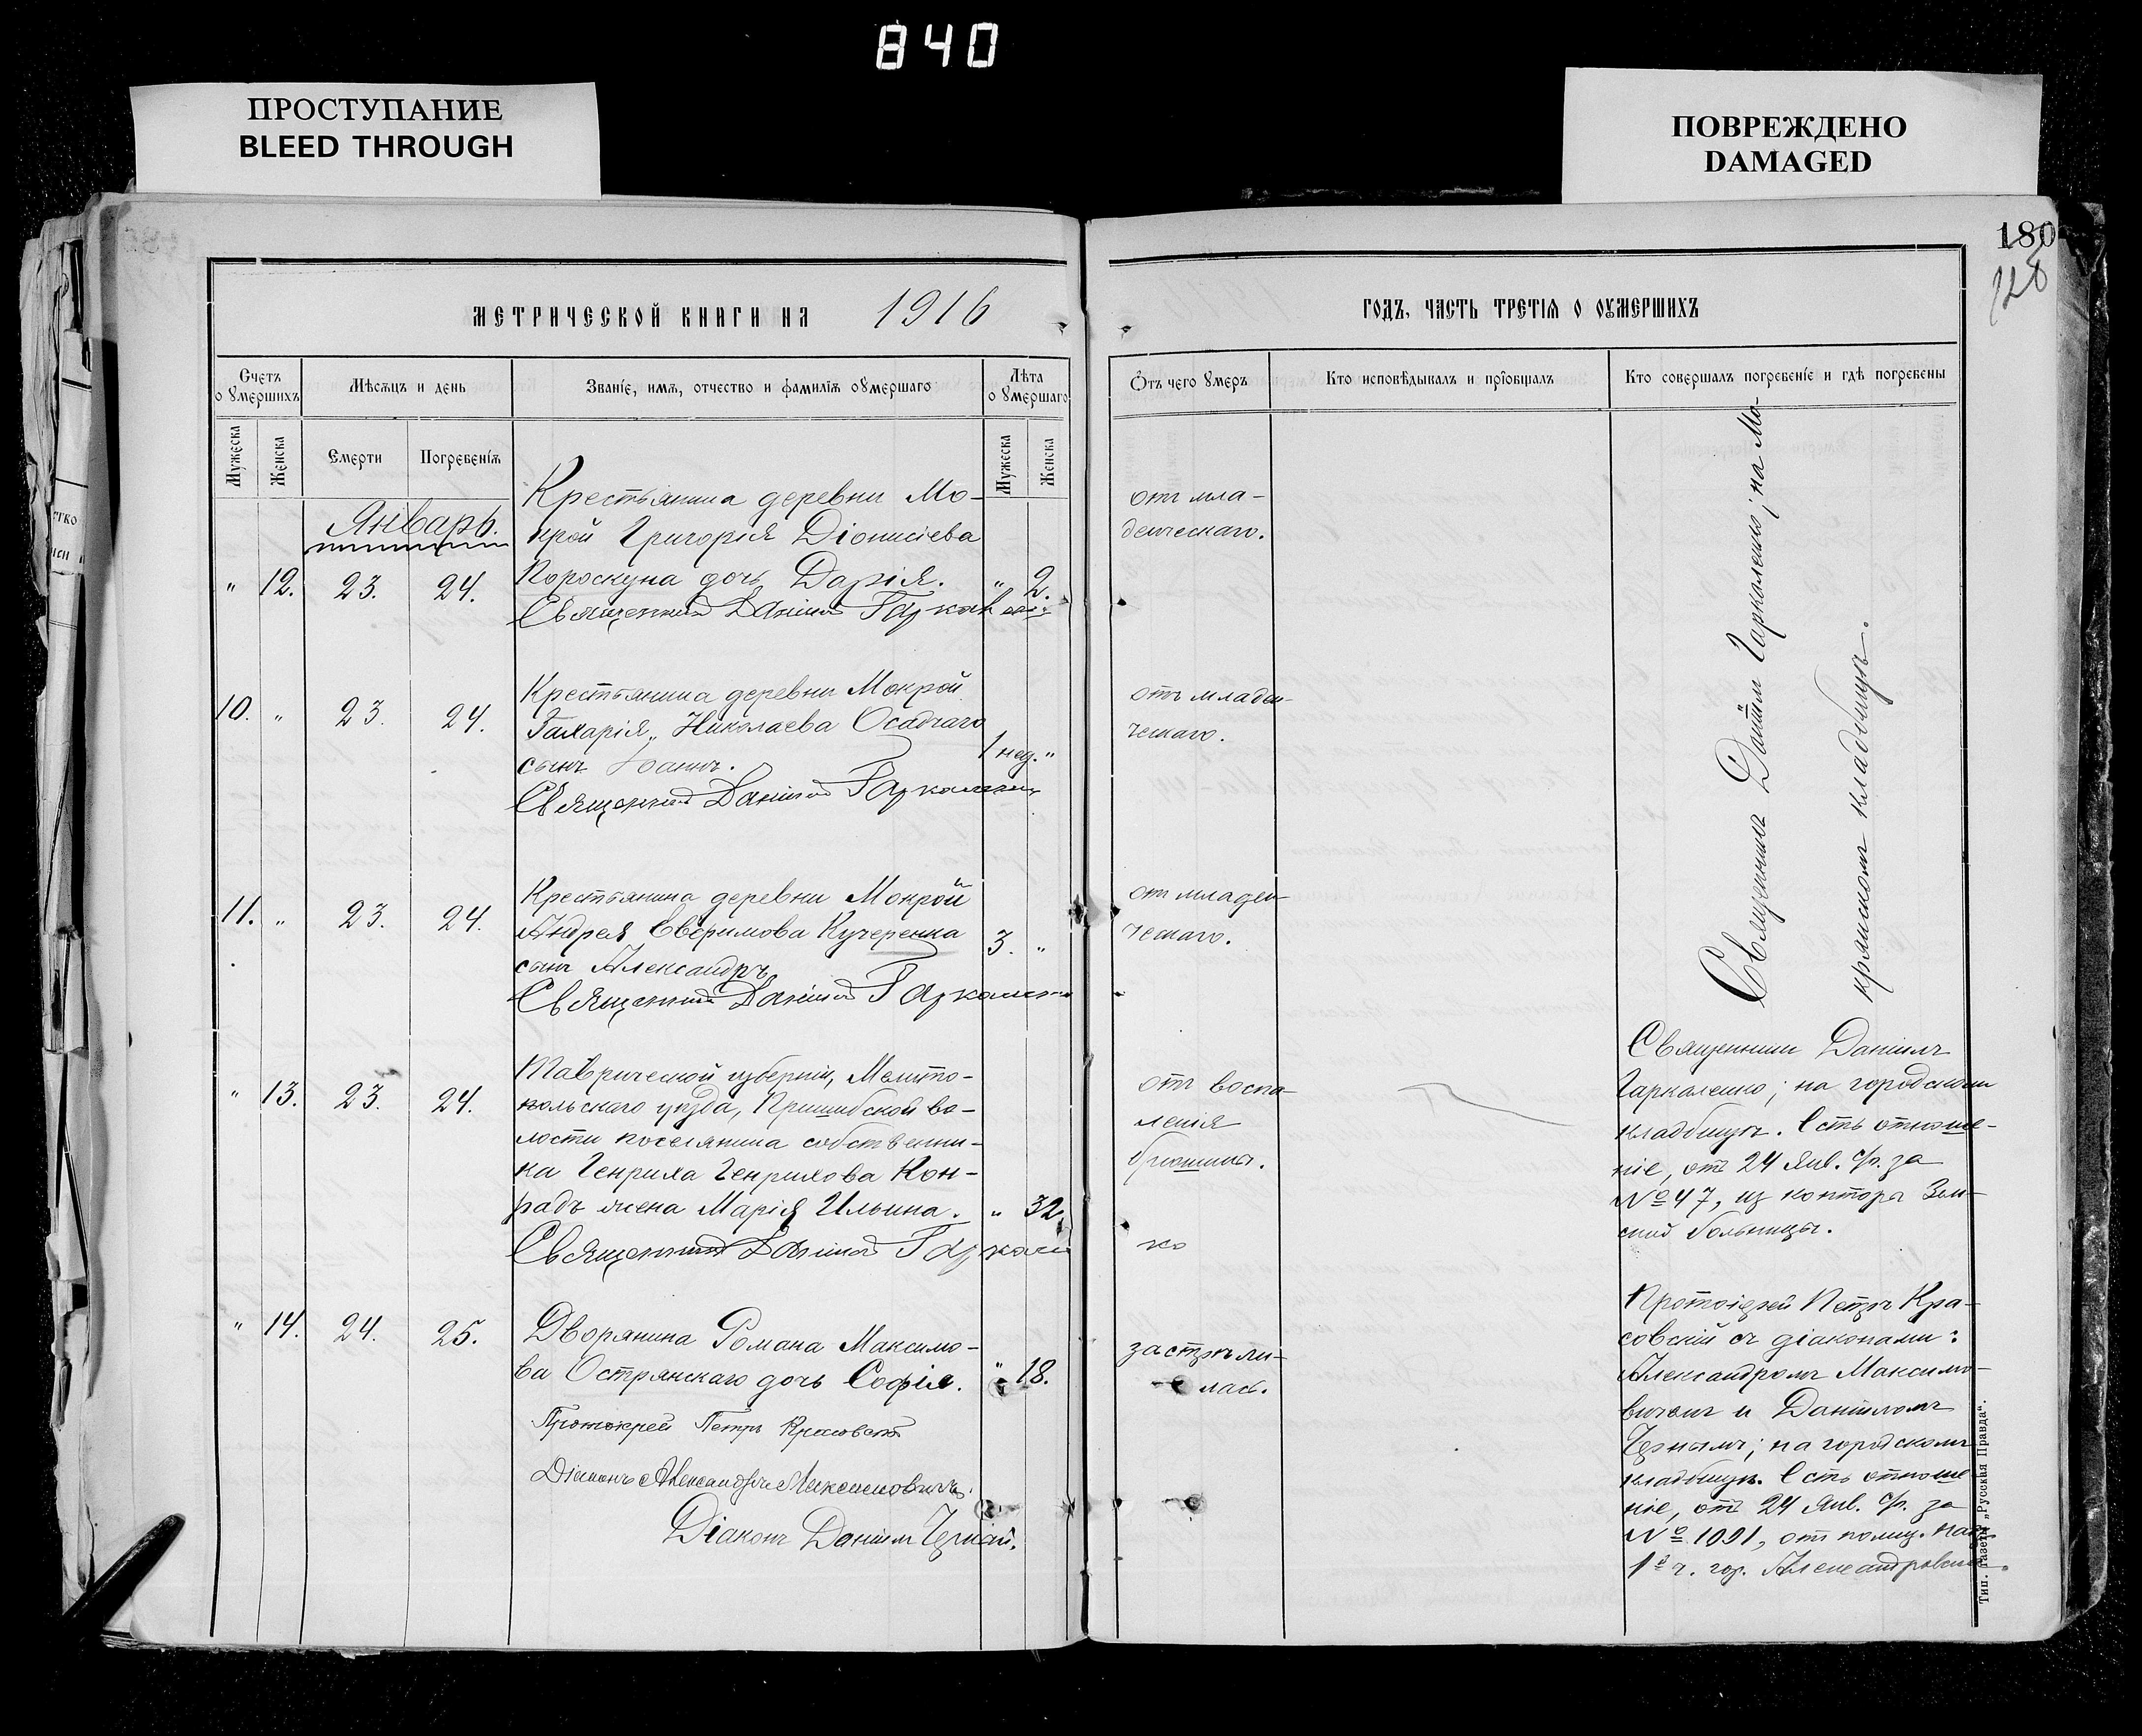 840
ПРОСТУПАНИЕ
BLEED THROUGH
ПОВРЕЖДЕНО
DAMAGED
180
МЕТРИЧЕСКОЙ КНИГИ НА 1916
ГОДЪ, ЧАСТЬ ТРЕТІѦ О ОУМЕРШИХЪ
Счетъ о умершихъ
Мѣсѧцъ и день
Званіе, имѧ, отчество и фамиліѧ оумершаго
Лѣта оумершаго
Мужеска
Женска
Смерти
Погребеніѧ
Мужеска
Женска
Отъ чего умеръ
Кто исповѣдывалъ и пріобщалъ
Кто совершалъ погребеніе и гдѣ погребены
Январь.
" 12. 23. 24.
Крестьянина деревни Мо-
крой Григорія Діонисіева
Пороскуна дочь Дарія. " 2.
Священникъ Даніилъ
отъ мла-
денческаго.
10. " 23. 24.
Крестьянина деревни Мокрой
Захарія Николаева Осадчаго
сынъ Іоаннъ. 1 нед. "
Священникъ Даніилъ Гаркаленко
отъ младен-
ческаго.
11. " 23. 24.
Крестьянина деревни Мокрой
Андрея Евфимова Кучеренка
сынъ Александръ 3. "
Священникъ Даніилъ Гаркаленко
отъ младен-
ческаго.
Священникъ Даніилъ Гаркаленко; на Мо-
крянскомъ кладбищѣ.
" 13. 23. 24.
Таврической губерніи, Мелито-
польскаго уѣзда, Пришибской во-
лости поселянина собственни-
ка Генриха Генрихова Кон-
радъ жена Марія Ильина. " 32.
Священникъ Даніилъ
отъ воспа-
ленія
брюшины.
Священникъ Даніилъ
Гаркаленко; на городскомъ
кладбищѣ. Есть отноше-
ніе, отъ 24 Янв. с/г. за
№ 47, изъ конторы Зем-
ской больницы.
" 14. 24. 25.
Дворянина Романа Максимо-
ва Острянскаго дочь Софія. " 18.
Протоіерей Петръ Красовскій
Діаконъ Александръ Максимовичъ.
Діаконъ Даніилъ Черный.
застрѣли-
лась.
Протоіерей Петръ Кра-
совскій съ діаконами:
Александромъ Максимо-
вичемъ и Даніиломъ
Чернымъ; на городскомъ
кладбищѣ. Есть отноше-
ніе, отъ 24 Янв. с/г. за
№ 1091, от полиц. над.
1й ч. гор. Александровска.
Тип. газеты „Русская Правда".